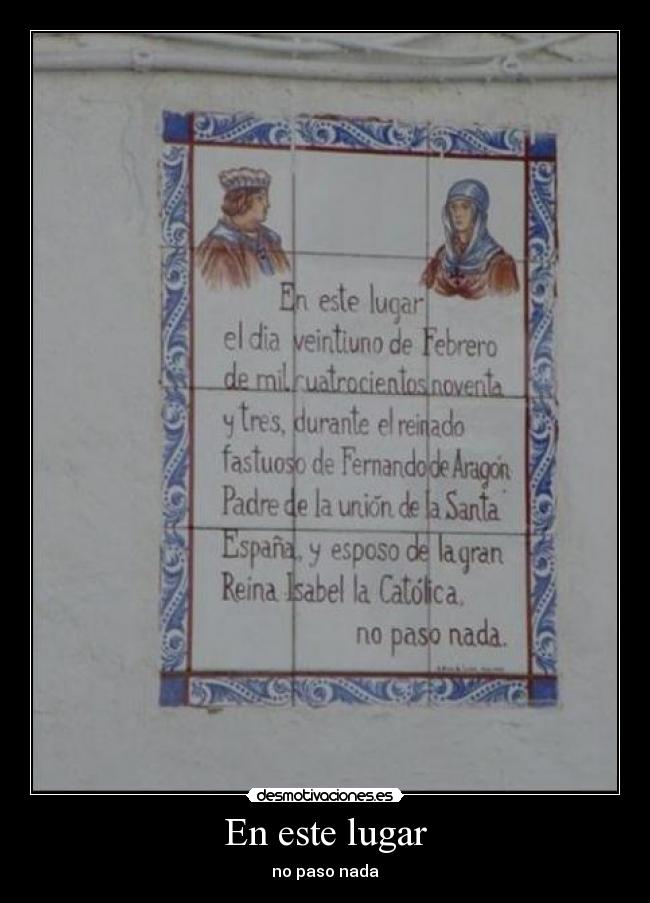 En este lugar
el dia veintiuno de Febrero
de mil cuatrocientos noventa
y tres, durante el reinado
fastuoso de Fernando de Aragón
Padre de la unión de la Santa
España, y esposo de la gran
Reina Isabel la Católica,
no paso nada.
desmotivaciones.es
En este lugar
no paso nada